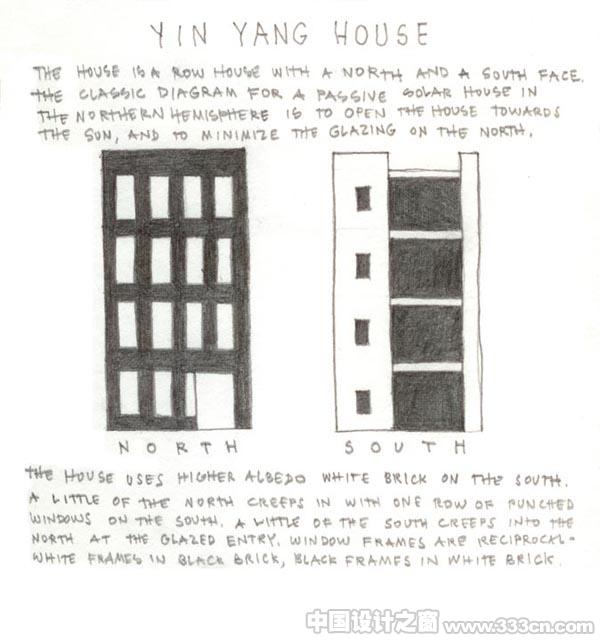 YIN YANG HOUSE
THE HOUSE IS A ROW HOUSE WITH A NORTH AND A SOUTH FACE.
THE CLASSIC DIAGRAM FOR A PASSIVE SOLAR HOUSE IN
THE NORTHERN HEMISPHERE IS TO OPEN THE HOUSE TOWARDS
THE SUN, AND TO MINIMIZE THE GLAZING ON THE NORTH.
NORTH
SOUTH
THE HOUSE USES HIGHER ALBEDO WHITE BRICK ON THE SOUTH.
A LITTLE OF THE NORTH CREEPS IN WITH ONE ROW OF PUNCHED
WINDOWS ON THE SOUTH. A LITTLE OF THE SOUTH CREEPS INTO THE
NORTH AT THE GLAZED ENTRY. WINDOW FRAMES ARE RECIPROCAL-
WHITE FRAMES IN BLACK BRICK, BLACK FRAMES IN WHITE BRICK.
中国设计之窗
www.333cn.com